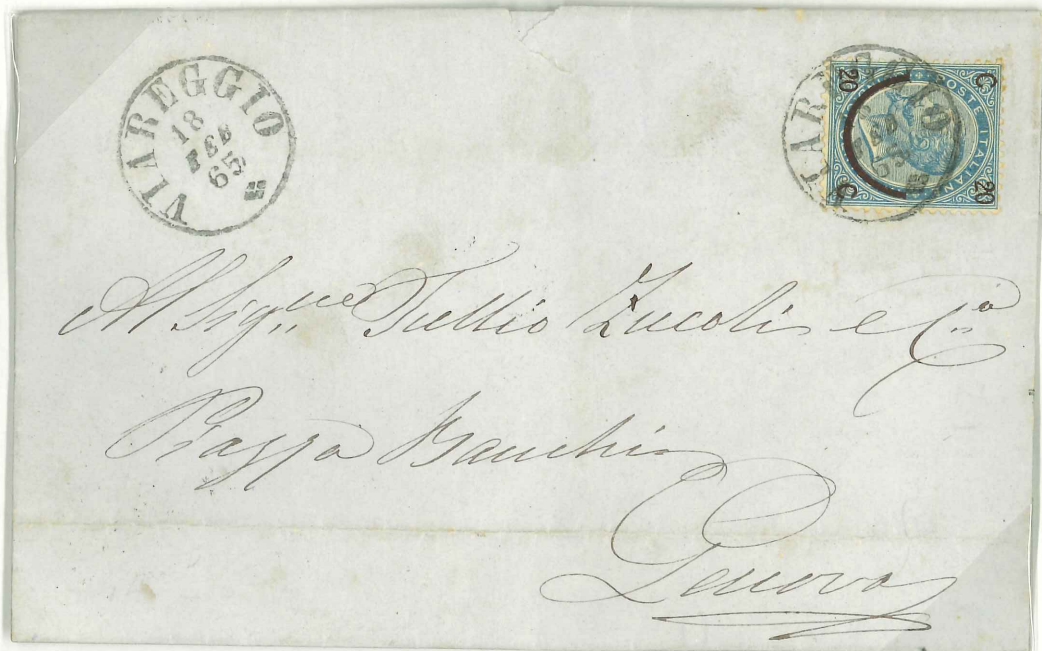 VIAREGGIO
18
FEB
65
VIAREGGIO
FEB
65
C 20
20 C
POSTE ITALIANE
Al Sig.re Tullio Zucoli e C.a
Piazza Banchi
Genova